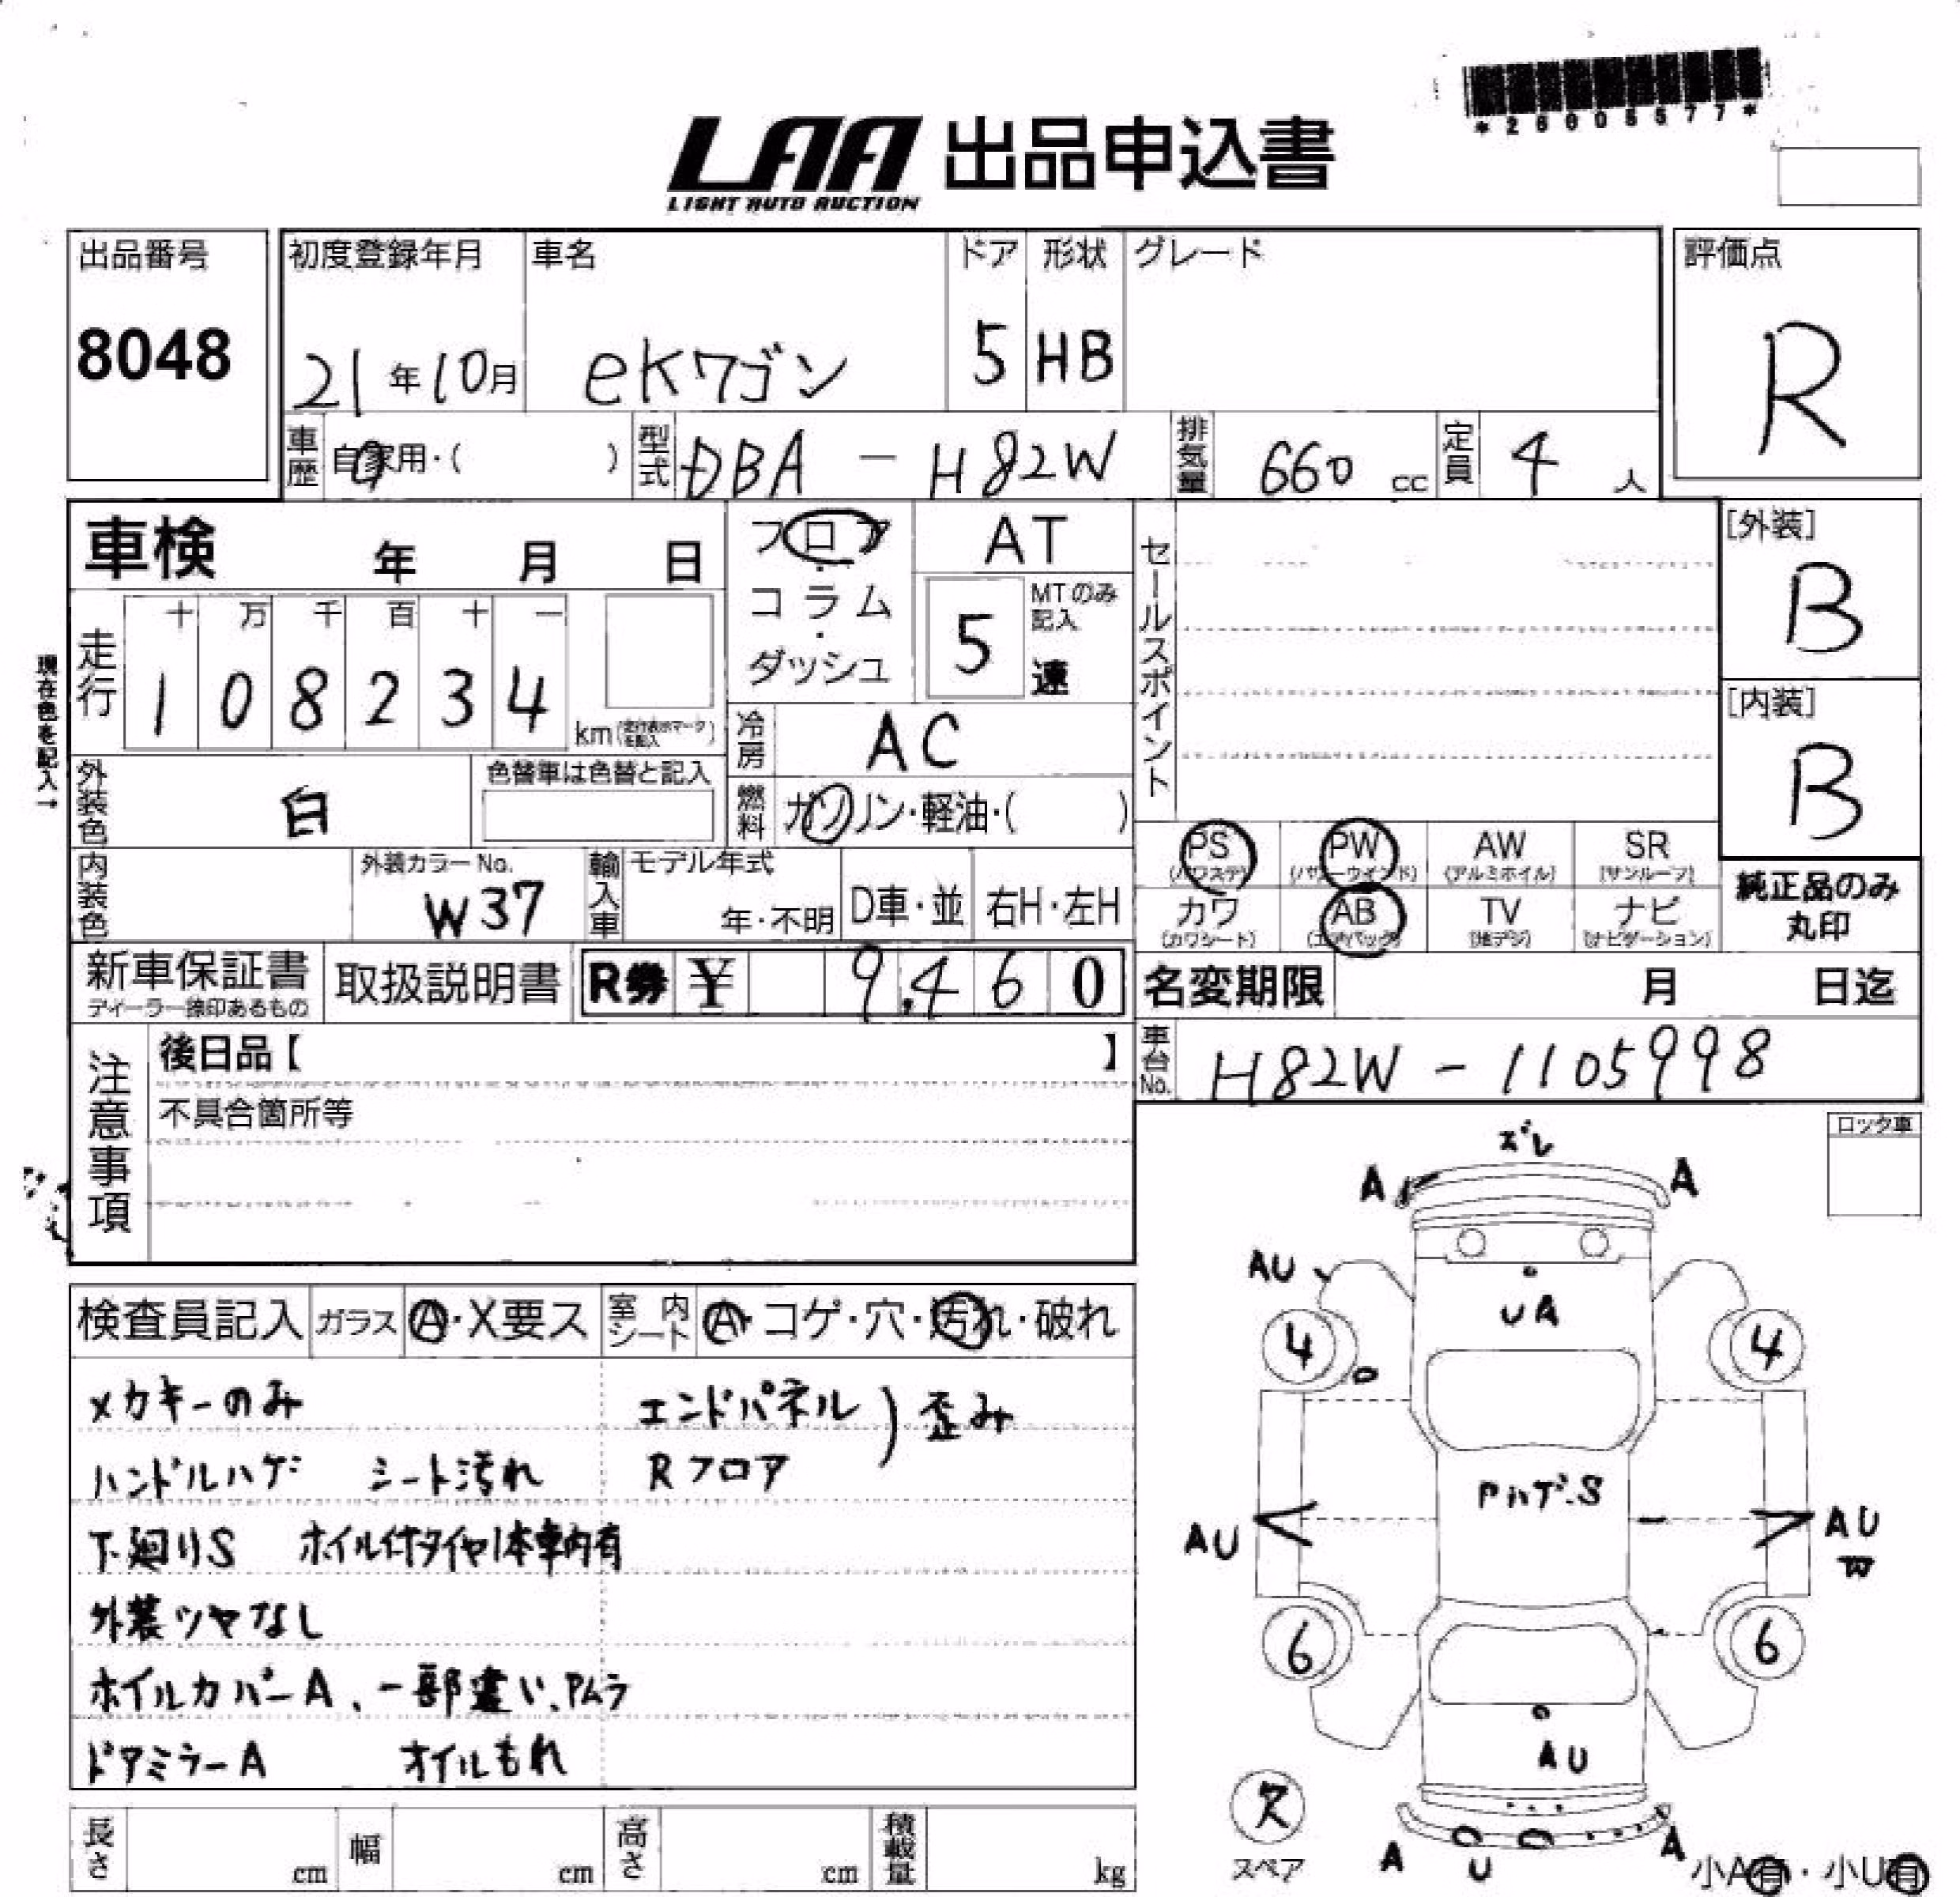 *26005577*
LAA 出品申込書
LIGHT AUTO AUCTION
出品番号 8048
初度登録年月 21年10月
車名 eKワゴン
ドア 5
形状 HB
グレード
評価点 R
車歴 自家用・( )
型式 DBA - H82W
排気量 660 cc
定員 4 人
車検 年 月 日
フロア・コラム・ダッシュ
AT
MTのみ記入
5 速
セールスポイント
[外装] B
[内装] B
現在色を記入→
走行 十 万 千 百 十 一
1 0 8 2 3 4 km
冷房 AC
外装色 白
色替車は色替と記入
燃料 ガソリン・軽油・( )
PS (パワステ) PW (パワーウインド) AW (アルミホイル) SR (サンルーフ)
カワ (カワシート) AB (エアバッグ) TV (地デジ) ナビ (ナビゲーション)
純正品のみ丸印
内装色
外装カラーNo. W37
輸入車
モデル年式 年・不明
D車・並
右H・左H
新車保証書
ディーラー捺印あるもの
取扱説明書
R券 ¥ 9,460
名変期限 月 日迄
注意事項
後日品【 】
不具合箇所等
車台No. H82W - 1105998
ロック車
検査員記入 ガラス A・X要ス
室内シート A・コゲ・穴・汚れ・破れ
メカキーのみ
エンドパネル
Rフロア ) 歪み
ハンドルハゲ シート汚れ
下廻りS ホイル付タイヤ1本車内有
外装ツヤなし
ホイルカバーA、一部違い、
ドアミラーA オイルもれ
ズレ
A A
AU
UA
4 4
PハゲS
AU AU
W
6 6
AU
欠
スペア
A U A
小A有・小U有
長さ cm 幅 cm 高さ cm 積載量 kg